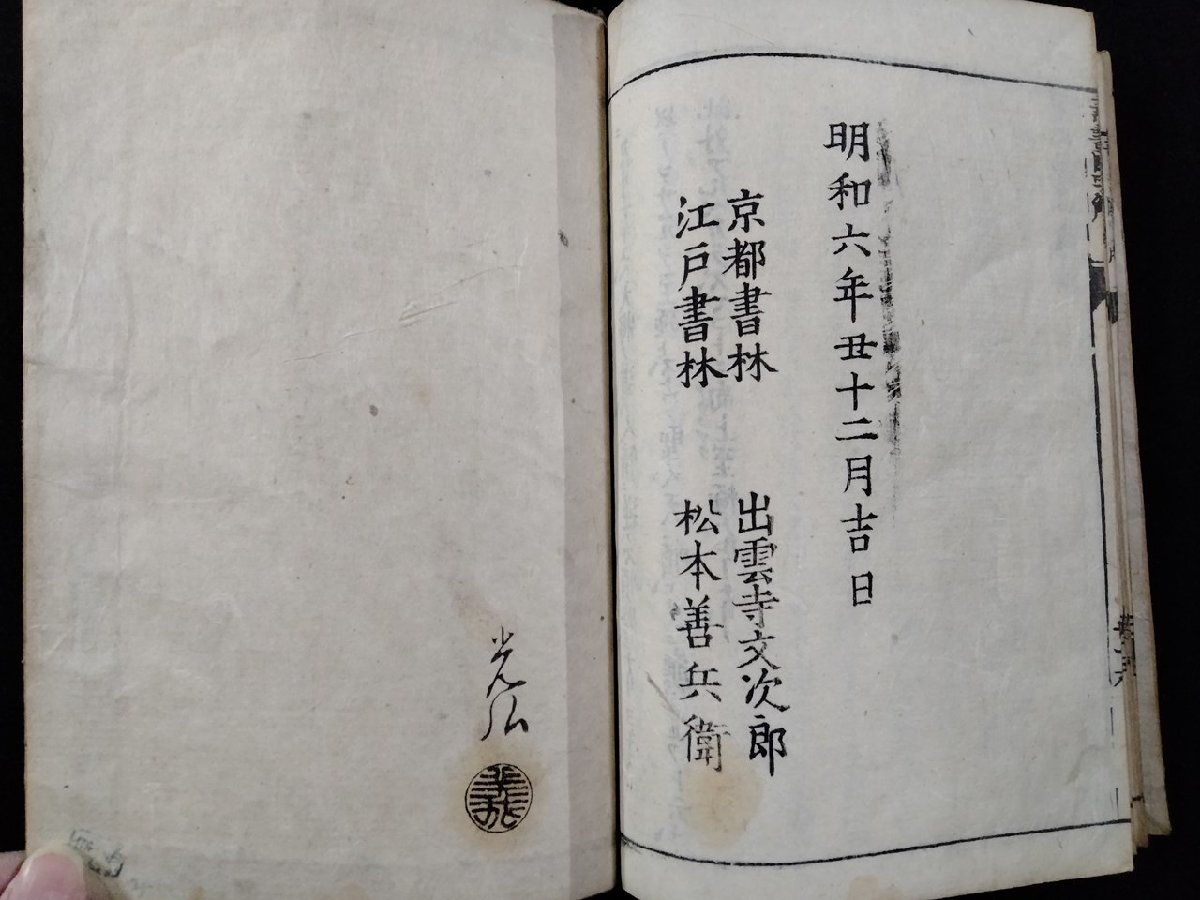 明和六年丑十二月吉日
京都書林 出雲寺文次郎
江戸書林 松本善兵衛
光弘
義